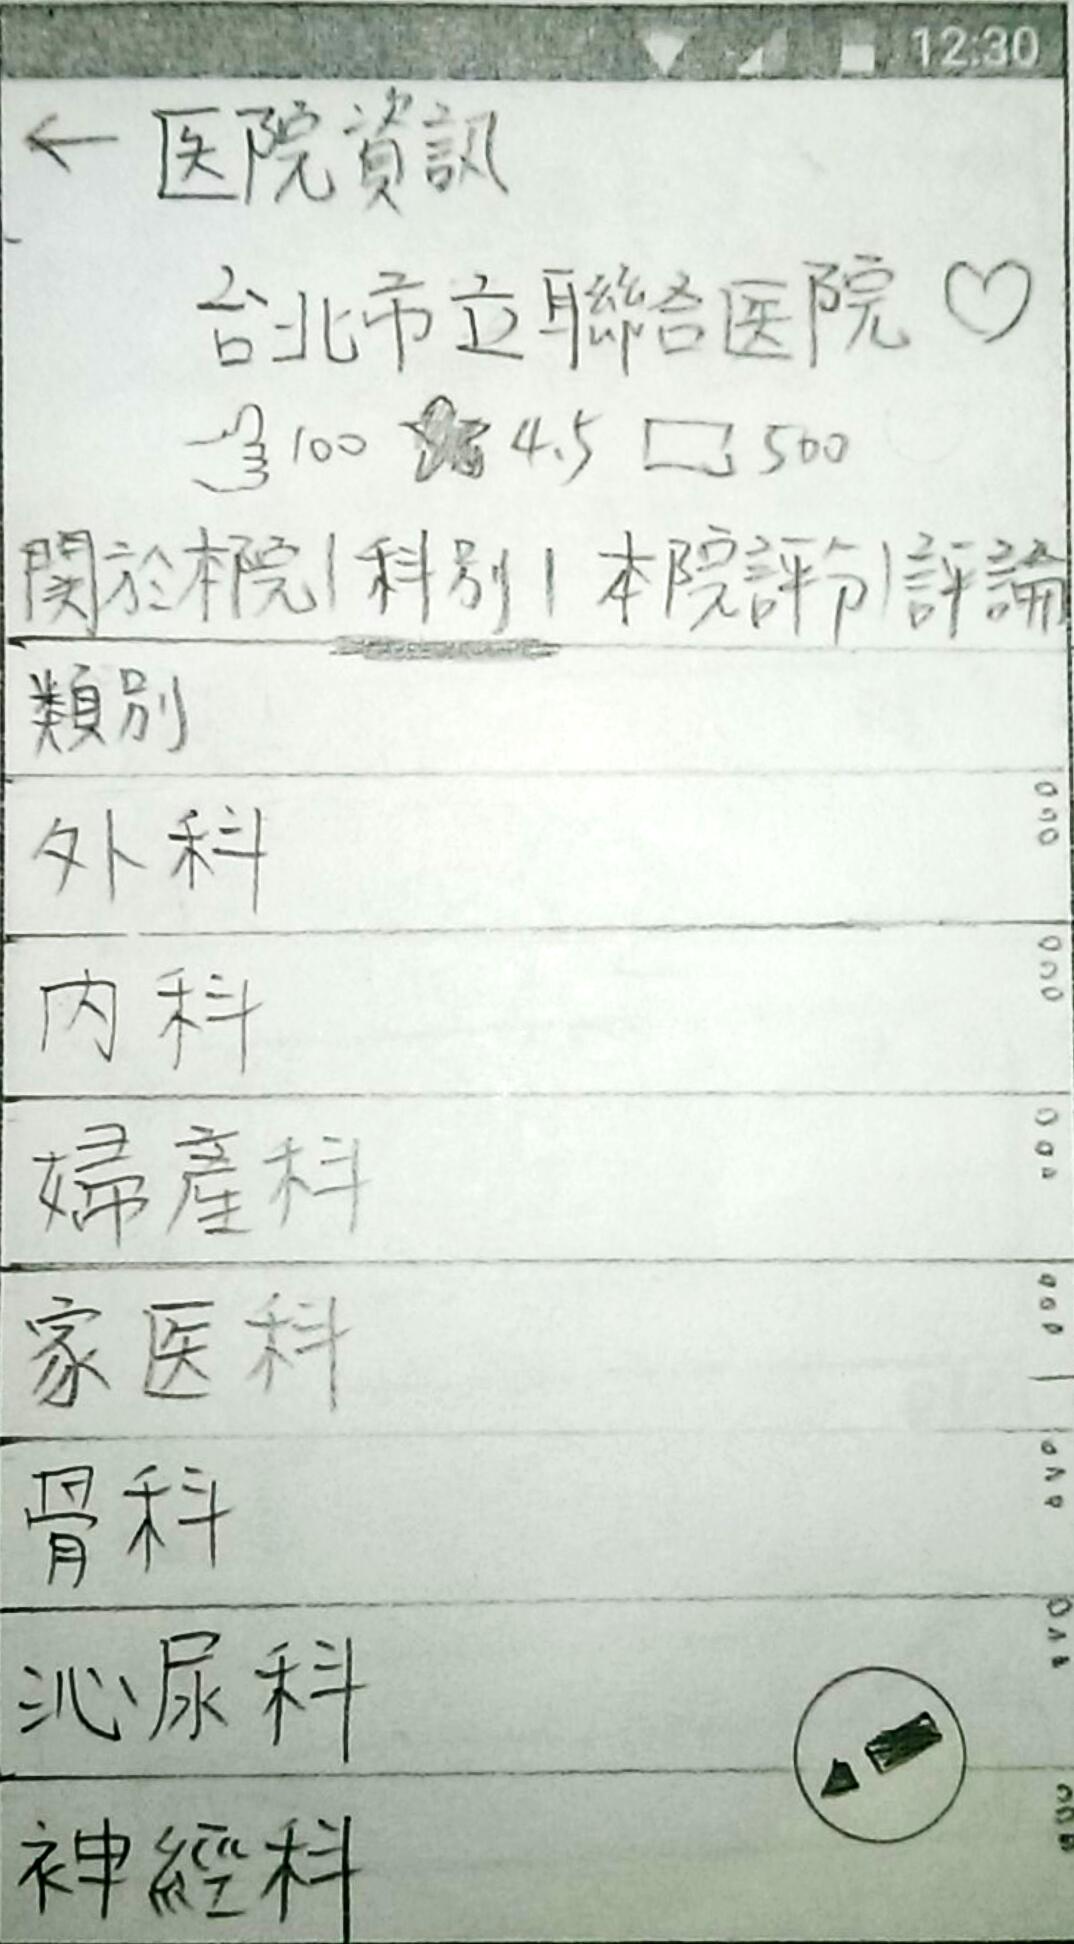 12:30
← 医院資訊
台北市立聯合医院 ♡
100 4.5 500
関於本院|科別|本院評分|評論
類別
外科
内科
婦產科
家医科
骨科
沁尿科
神經科